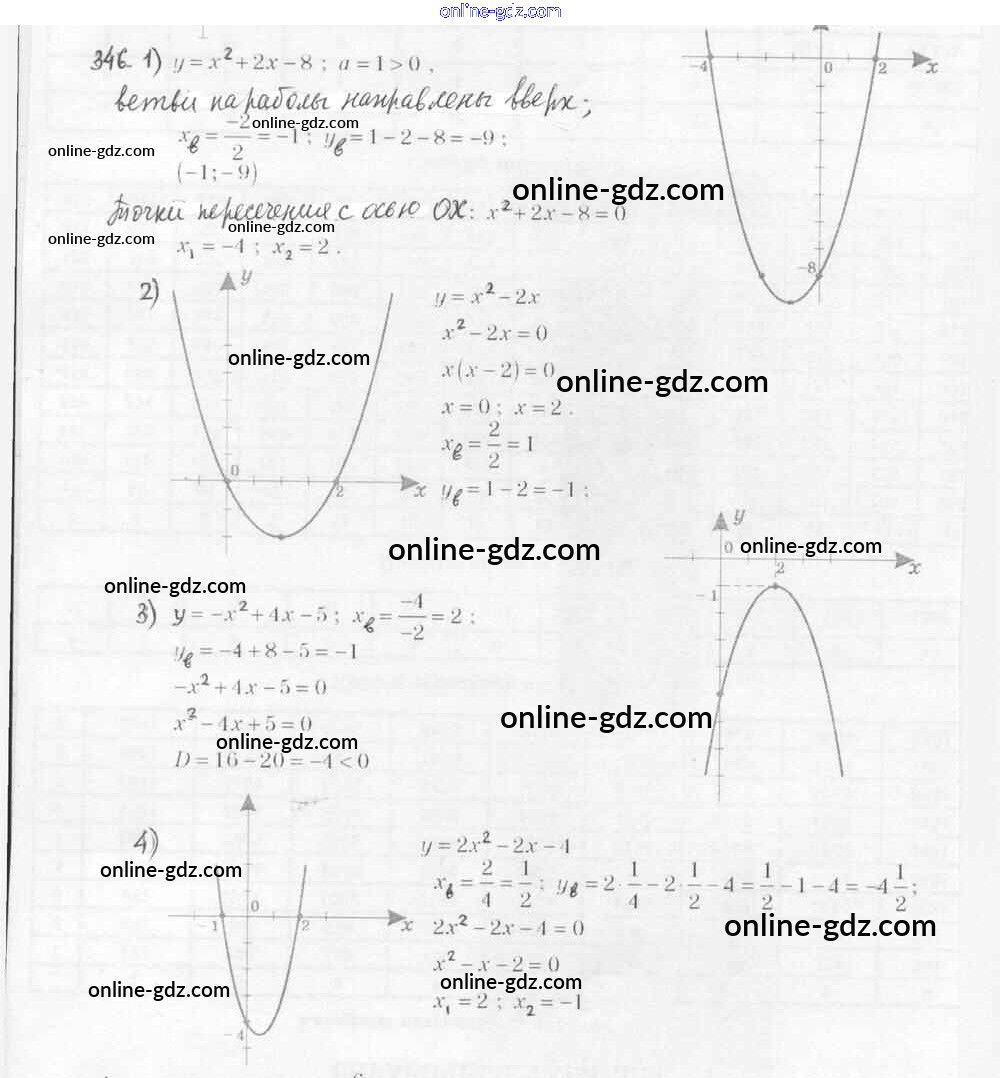 online-gdz.com
346. 1) y = x² + 2x − 8 ; a = 1 > 0 ,
ветви параболы направлены вверх;
online-gdz.com
x_в = −2/2 = −1 ; y_в = 1 − 2 − 8 = −9 ;
online-gdz.com
(−1; −9)
online-gdz.com
Точки пересечения с осью OX: x² + 2x − 8 = 0
online-gdz.com
online-gdz.com
x₁ = −4 ; x₂ = 2 .
−4 0 2 x
−8
2)
y
0 2 x
online-gdz.com
y = x² − 2x
x² − 2x = 0
x(x − 2) = 0
online-gdz.com
x = 0 ; x = 2 .
x_в = 2/2 = 1
y_в = 1 − 2 = −1 ;
online-gdz.com
y
0 online-gdz.com
2 x
−1
online-gdz.com
3) y = −x² + 4x − 5 ; x_в = −4/−2 = 2 ;
y_в = −4 + 8 − 5 = −1
−x² + 4x − 5 = 0
x² − 4x + 5 = 0
online-gdz.com
online-gdz.com
D = 16 − 20 = −4 < 0
4)
online-gdz.com
0
−1 2 x
−4
y = 2x² − 2x − 4
x_в = 2/4 = 1/2 ; y_в = 2 · 1/4 − 2 · 1/2 − 4 = 1/2 − 1 − 4 = −4 1/2 ;
online-gdz.com
2x² − 2x − 4 = 0
x² − x − 2 = 0
online-gdz.com
online-gdz.com
x₁ = 2 ; x₂ = −1